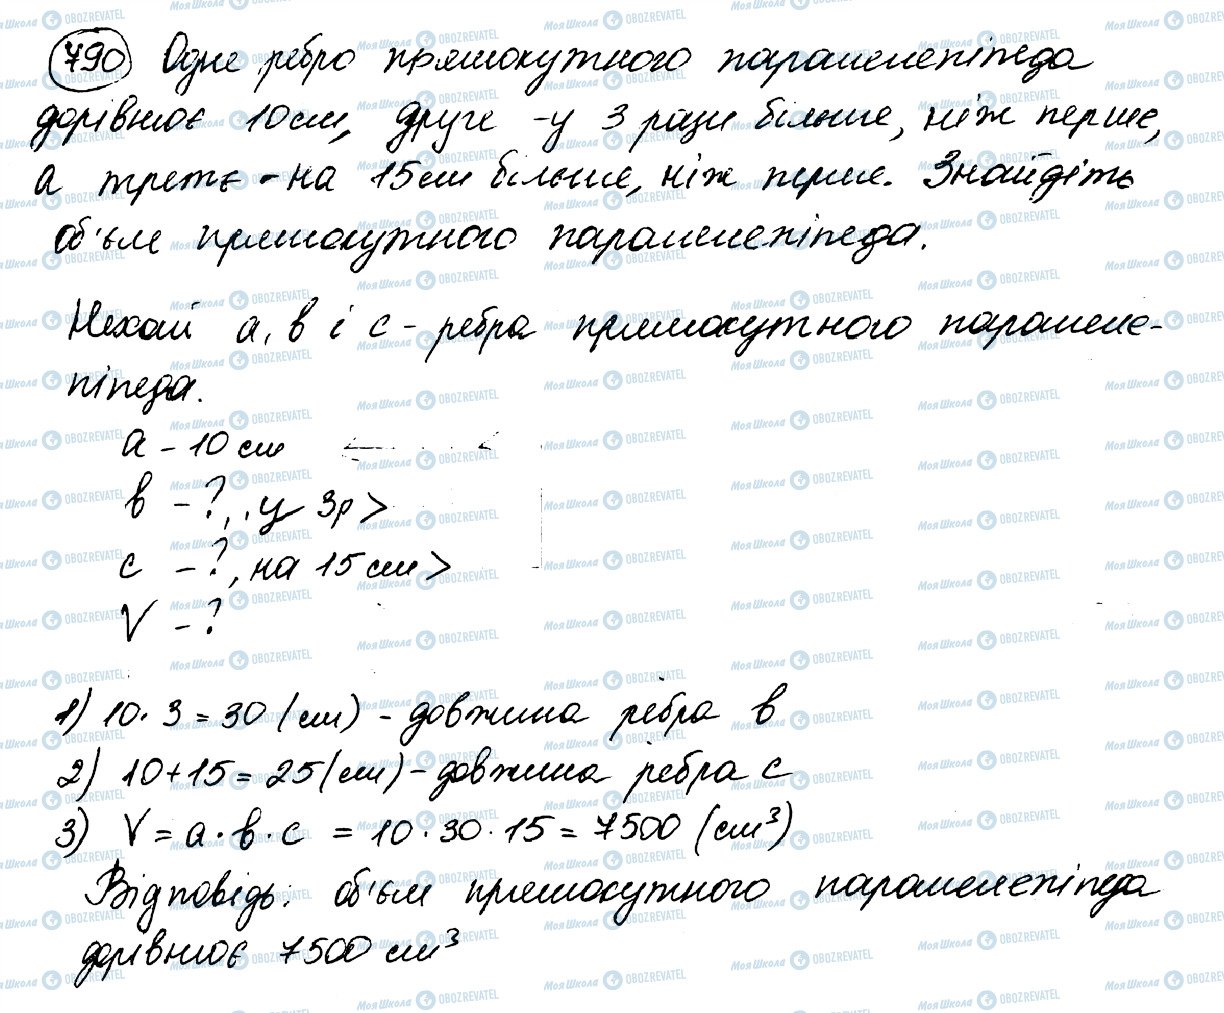 790 Одне ребро прямокутного паралелепіпеда
дорівнює 10 см, друге - у 3 рази більше, ніж перше,
а третє - на 15 см більше, ніж перше. Знайдіть
об'єм прямокутного паралелепіпеда.
Нехай a, b і c - ребра прямокутного паралеле-
піпеда.
a - 10 см
b - ?, у 3р >
c - ?, на 15 см >
V - ?
1) 10 · 3 = 30 (см) - довжина ребра b
2) 10 + 15 = 25 (см) - довжина ребра c
3) V = a · b · c = 10 · 30 · 15 = 7500 (см³)
Відповідь: об'єм прямокутного паралелепіпеда
дорівнює 7500 см³
Моя Школа OBOZREVATEL